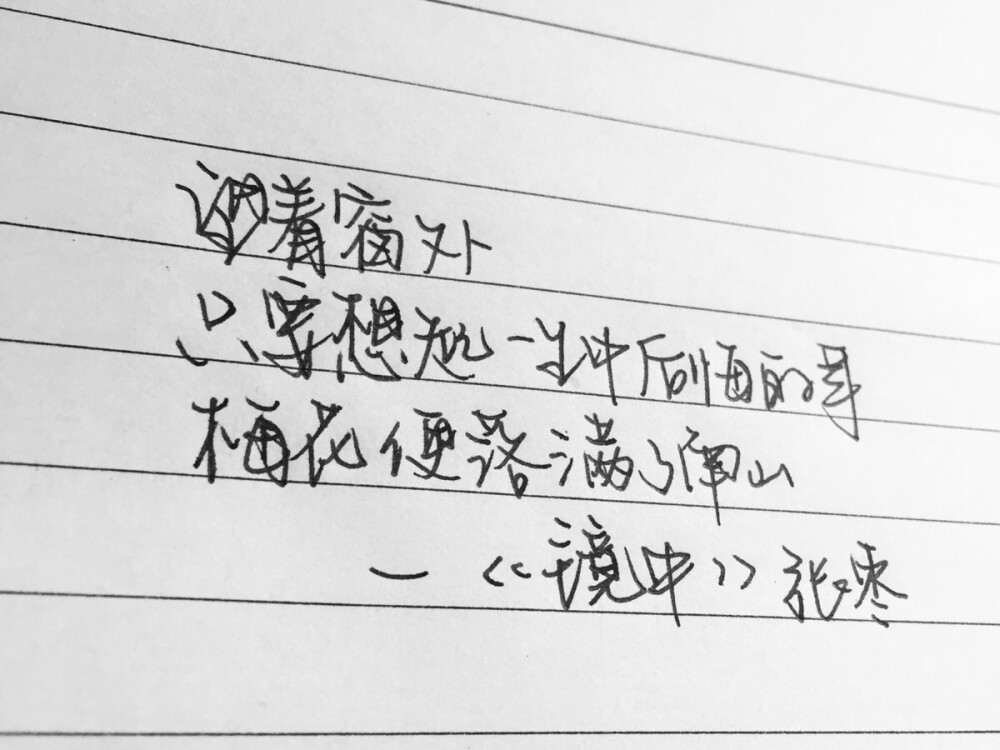 望着窗外
只要想起一生中后悔的事
梅花便落满了南山
— 《镜中》 张枣